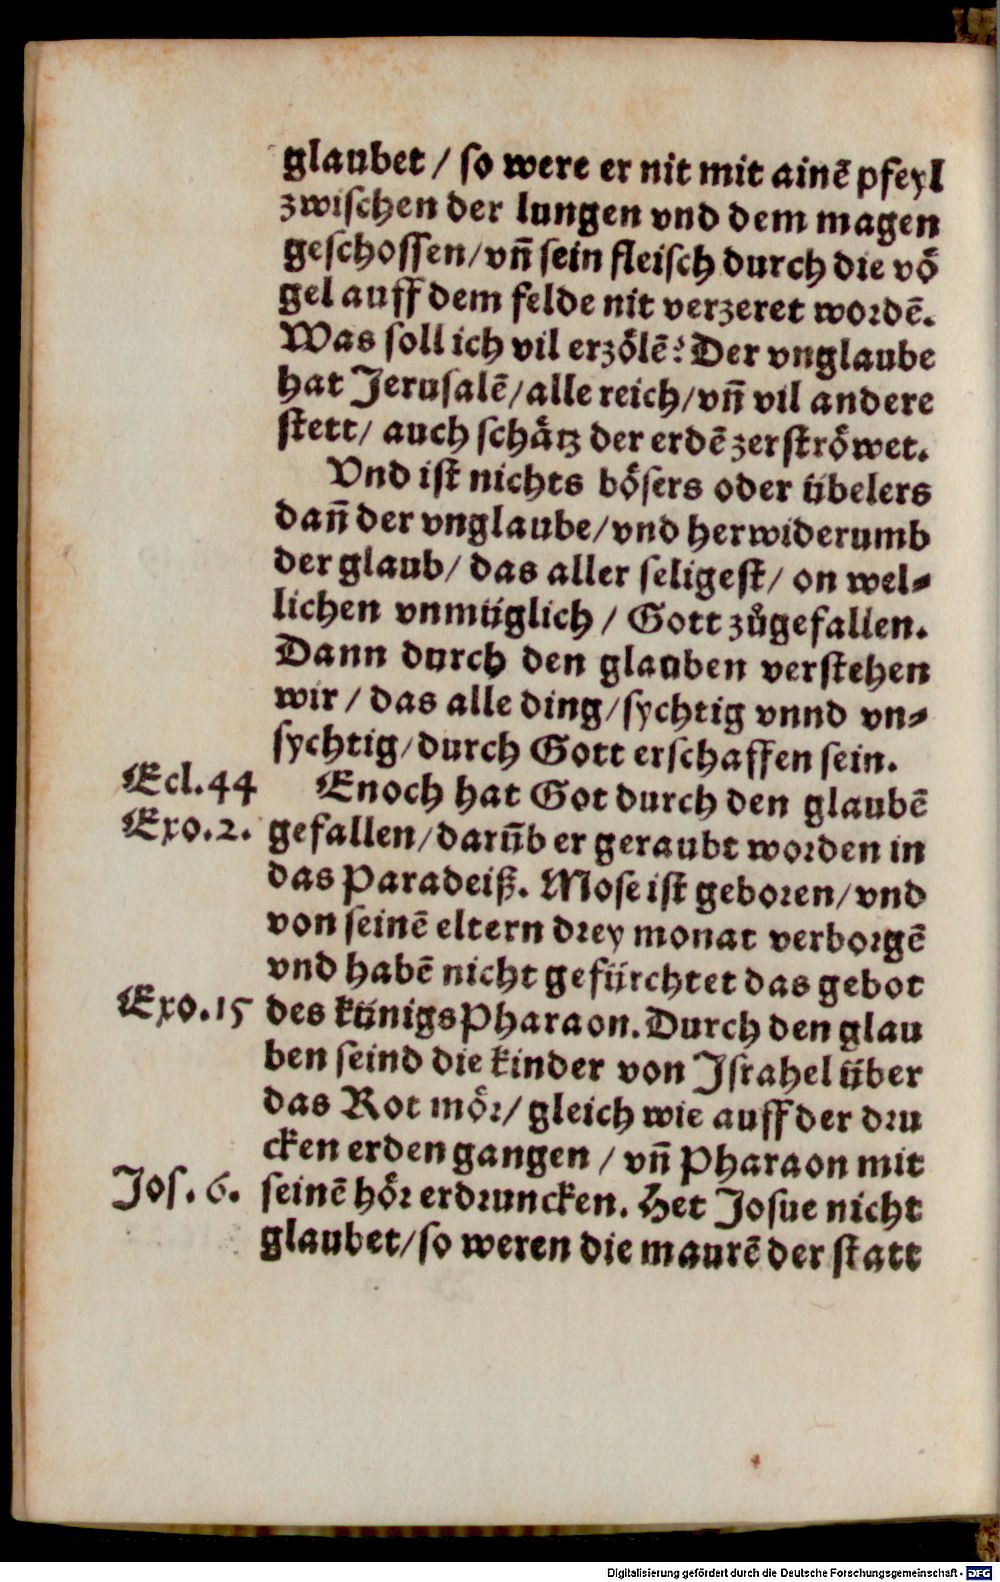 glaubet / so were er nit mit ainē pfeyl
zwischen der lungen vnd dem magen
geschossen/vñ sein fleisch durch die voͤ
gel auff dem felde nit verzeret wordē.
Was soll ich vil erzoͤlē? Der vnglaube
hat Jerusalē/alle reich/vñ vil andere
stett/ auch schaͤtz der erdē zerstroͤwet.
Vnd ist nichts boͤsers oder übelers
dañ der vnglaube/vnd herwiderumb
der glaub/ das aller seligest/ on wel-
lichen vnmüglich / Gott zůgefallen.
Dann durch den glauben verstehen
wir / das alle ding/sychtig vnnd vn-
sychtig/durch Gott erschaffen sein.
Ecl.44
Enoch hat Got durch den glaubē
Exo.2.
gefallen/darūb er geraubt worden in
das Paradeiß. Mose ist geboren/vnd
von seinē eltern drey monat verborgē
vnd habē nicht gefürchtet das gebot
Exo.15
des künigs Pharaon. Durch den glau
ben seind die kinder von Israhel über
das Rot moͤr/ gleich wie auff der dru
cken erden gangen / vñ Pharaon mit
Jos. 6.
seinē hoͤr erdruncken. Het Josue nicht
glaubet/so weren die maurē der statt
Digitalisierung gefördert durch die Deutsche Forschungsgemeinschaft - DFG